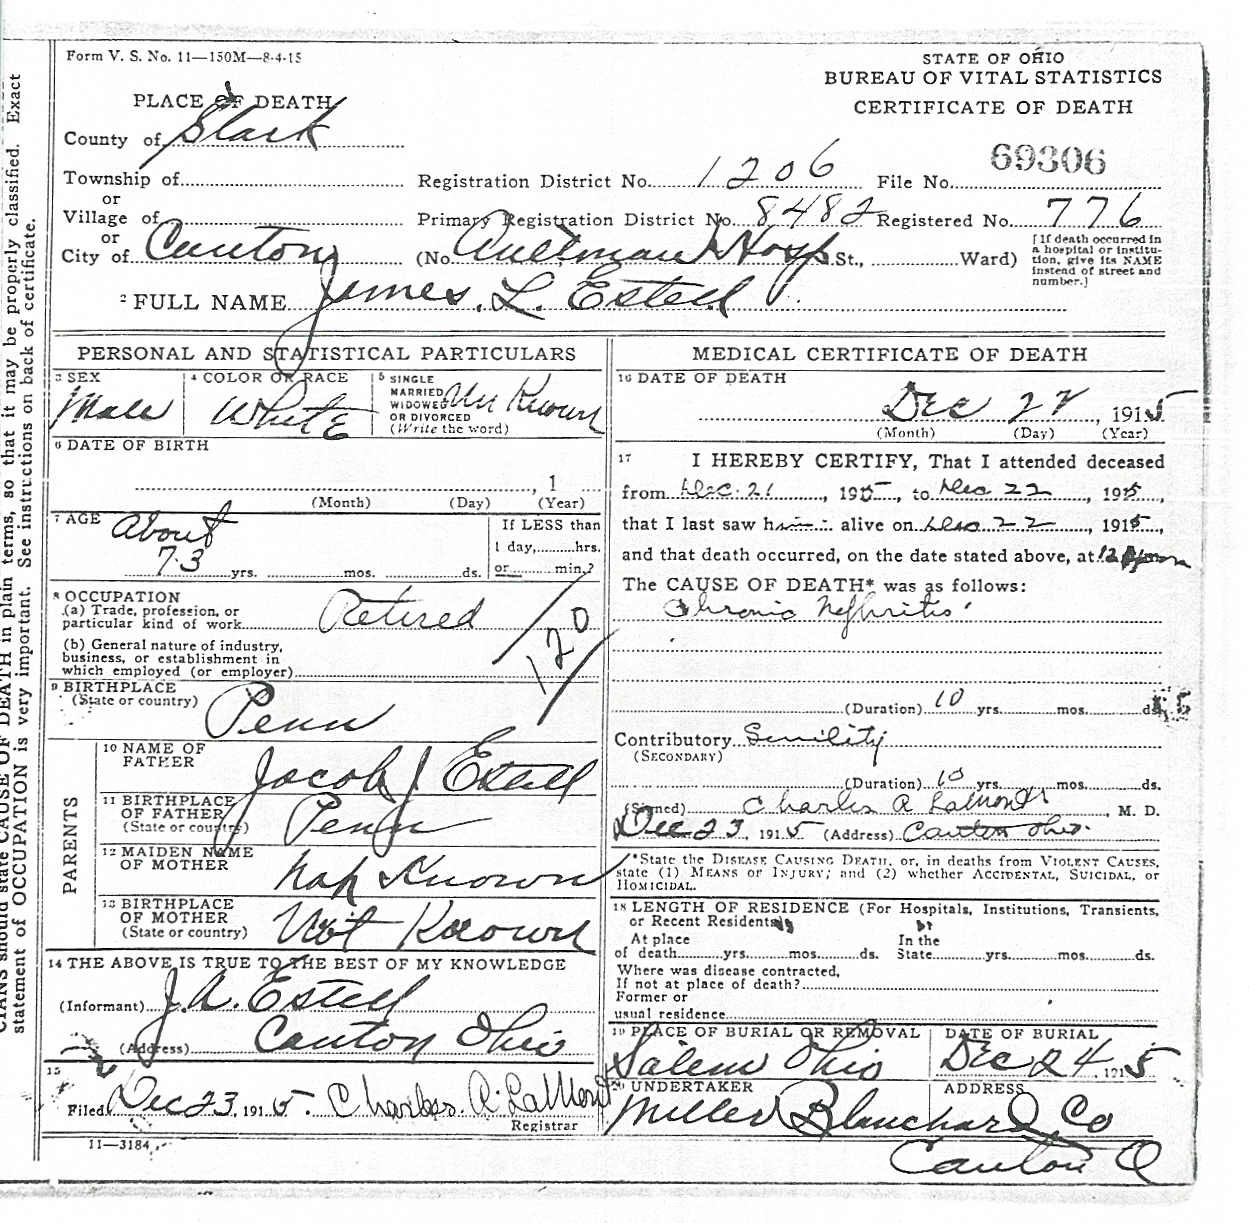 Form V. S. No. 11—150M—8-4-15
STATE OF OHIO
BUREAU OF VITAL STATISTICS
CERTIFICATE OF DEATH
PLACE OF DEATH
County of Stark
69306
Township of
Registration District No. 1206 File No.
or
Village of
Primary Registration District No. 8482 Registered No. 776
or
City of Canton (No. Aultman Hosp St., Ward)
[If death occurred in
a hospital or institu-
tion, give its NAME
instead of street and
number.]
2 FULL NAME James. L. Estell
PERSONAL AND STATISTICAL PARTICULARS
3 SEX
Male
4 COLOR OR RACE
White
5 SINGLE
MARRIED
WIDOWED
OR DIVORCED
(Write the word)
Un Known
6 DATE OF BIRTH
, 1
(Month) (Day) (Year)
7 AGE
About
73 yrs. mos. ds.
If LESS than
1 day, hrs.
or min.?
8 OCCUPATION
(a) Trade, profession, or
particular kind of work Retired
(b) General nature of industry,
business, or establishment in
which employed (or employer)
120
9 BIRTHPLACE
(State or country)
Penn
PARENTS
10 NAME OF
FATHER
Jacob J Estell
11 BIRTHPLACE
OF FATHER
(State or country)
Penn
12 MAIDEN NAME
OF MOTHER
Not Known
13 BIRTHPLACE
OF MOTHER
(State or country)
Not Known
14 THE ABOVE IS TRUE TO THE BEST OF MY KNOWLEDGE
(Informant) J. A. Estell
(Address) Canton Ohio
15
Filed Dec 23, 1915. Charles. A. LaMont
Registrar
11—3184
MEDICAL CERTIFICATE OF DEATH
16 DATE OF DEATH
Dec 22, 1915
(Month) (Day) (Year)
17 I HEREBY CERTIFY, That I attended deceased
from Dec. 21, 1915, to Dec 22, 1915,
that I last saw him alive on Dec 22, 1915,
and that death occurred, on the date stated above, at 12
The CAUSE OF DEATH* was as follows:
Chronic Nephritis
(Duration) 10 yrs. mos. ds.
Contributory Senility
(SECONDARY)
(Duration) 10 yrs. mos. ds.
(Signed) Charles A LaMont, M. D.
Dec 23, 1915 (Address) Canton Ohio.
*State the DISEASE CAUSING DEATH, or, in deaths from VIOLENT CAUSES,
state (1) MEANS OF INJURY; and (2) whether ACCIDENTAL, SUICIDAL, or
HOMICIDAL.
18 LENGTH OF RESIDENCE (For Hospitals, Institutions, Transients,
or Recent Residents)
At place
of death yrs. mos. ds.
In the
State yrs. mos. ds.
Where was disease contracted,
If not at place of death?
Former or
usual residence
19 PLACE OF BURIAL OR REMOVAL
Salem Ohio
DATE OF BURIAL
Dec 24, 1915
20 UNDERTAKER
Miller Blanchard Co
ADDRESS
Canton O
terms, so that it may be properly classified. Exact
See instructions on back of certificate.
should state CAUSE OF DEATH in plain
statement of OCCUPATION is very important.